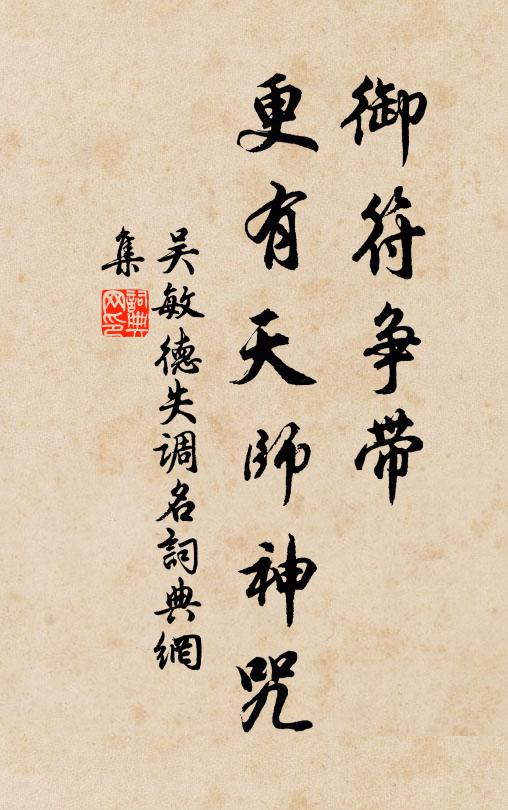 御符争带
更有天师神咒
吴敏德失调名詞典網
集
詞典网印